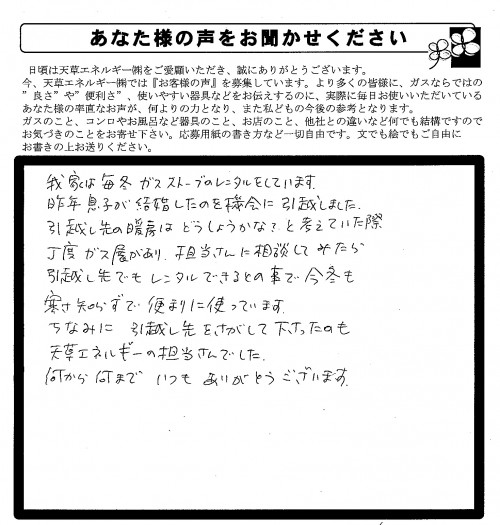 あなた様の声をお聞かせください
日頃は天草エネルギー㈱をご愛顧いただき、誠にありがとうございます。
今、天草エネルギー㈱では『お客様の声』を募集しています。より多くの皆様に、ガスならではの
”良さ”や”便利さ”、使いやすい器具などをお伝えするのに、実際に毎日お使いいただいている
あなた様の率直なお声が、何よりの力となり、また私どもの今後の参考となります。
ガスのこと、コンロやお風呂など器具のこと、お店のこと、他社との違いなど何でも結構ですので
お気づきのことをお寄せ下さい。応募用紙の書き方など一切自由です。文でも絵でもご自由に
お書きの上お送りください。
我家は毎冬ガスストーブのレンタルをしています。
昨年息子が結婚したのを機会に引越しました。
引越し先の暖房はどうしようかな？と考えていた際
丁度ガス屋があり、担当さんに相談してみたら
引越し先でもレンタルできるとの事で今冬も
寒さ知らずで便利に使っています。
ちなみに引越し先をさがして下さったのも
天草エネルギーの担当さんでした。
何から何までいつもありがとうございます。